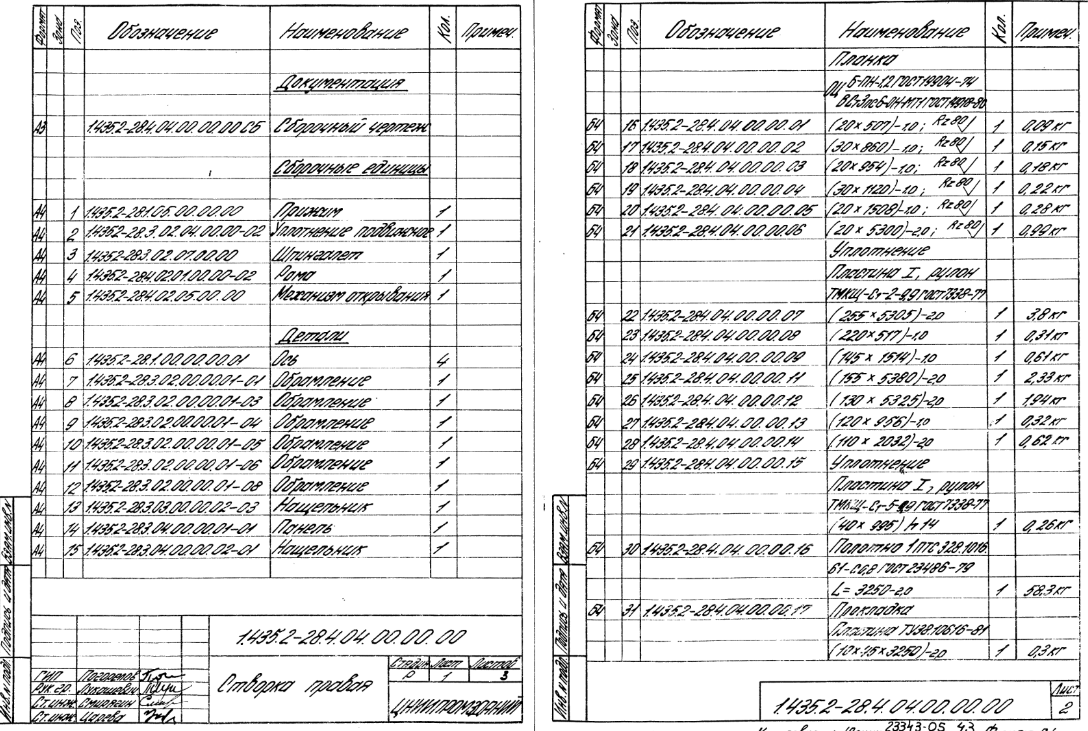 Формат Зона Поз. Обозначение Наименование Кол. Примеч.
Документация
А3 1.435.2-28.4.04.00.00.00 СБ Сборочный чертеж
Сборочные единицы
А4 1 1.435.2-28.1.05.00.00.00 Прижим 1
А4 2 1.435.2-28.3.02.04.00.00-02 Уплотнение подвижное 1
А4 3 1.435.2-28.3.02.07.00.00 Шпингалет 1
А4 4 1.435.2-28.4.02.01.00.00-02 Рама 1
А4 5 1.435.2-28.4.02.05.00.00 Механизм открывания 1
Детали
А4 6 1.435.2-28.1.00.00.00.01 Ось 4
А4 7 1.435.2-28.3.02.00.00.01-01 Обрамление 1
А4 8 1.435.2-28.3.02.00.00.01-03 Обрамление 1
А4 9 1.435.2-28.3.02.00.00.01-04 Обрамление 1
А4 10 1.435.2-28.3.02.00.00.01-05 Обрамление 1
А4 11 1.435.2-28.3.02.00.00.01-06 Обрамление 1
А4 12 1.435.2-28.3.02.00.00.01-08 Обрамление 1
А4 13 1.435.2-28.3.03.00.00.02-03 Нащельник 1
А4 14 1.435.2-28.3.04.00.00.01-01 Панель 1
А4 15 1.435.2-28.3.04.00.00.02-01 Нащельник 1
Инв. № подл. Подпись и дата Взам. инв. №
1.435.2-28.4.04.00.00.00
Створка правая
Стадия Лист Листов
Р 1 3
ЦНИИпромзданий
ГИП
Рук. гр. Лукашевич
Ст. инж. Смирягин
Ст. инж. Царева
Формат Зона Поз. Обозначение Наименование Кол. Примеч.
Планка
ОЦ Б-ПН-1,2 ГОСТ 19904-74
БЧ 16 1.435.2-28.4.04.00.00.01 (20×507)-1,0; Rz80 1 0,09 кг
БЧ 17 1.435.2-28.4.04.00.00.02 (30×860)-1,0; Rz80 1 0,15 кг
БЧ 18 1.435.2-28.4.04.00.00.03 (20×954)-1,0; Rz80 1 0,18 кг
БЧ 19 1.435.2-28.4.04.00.00.04 (30×1120)-1,0; Rz80 1 0,22 кг
БЧ 20 1.435.2-28.4.04.00.00.05 (20×1508)-1,0; Rz80 1 0,28 кг
БЧ 21 1.435.2-28.4.04.00.00.06 (20×5300)-2,0; Rz80 1 0,99 кг
Уплотнение
Пластина I, рулон
ТМКЩ-Ст-2-0,9 ГОСТ 7338-77
БЧ 22 1.435.2-28.4.04.00.00.07 (255×5305)-2,0 1 3,8 кг
БЧ 23 1.435.2-28.4.04.00.00.08 (220×517)-1,0 1 0,31 кг
БЧ 24 1.435.2-28.4.04.00.00.09 (145×1514)-1,0 1 0,61 кг
БЧ 25 1.435.2-28.4.04.00.00.11 (155×5380)-2,0 1 2,33 кг
БЧ 26 1.435.2-28.4.04.00.00.12 (130×5325)-2,0 1 1,94 кг
БЧ 27 1.435.2-28.4.04.00.00.13 (120×956)-1,0 1 0,32 кг
БЧ 28 1.435.2-28.4.04.00.00.14 (110×2032)-2,0 1 0,62 кг
БЧ 29 1.435.2-28.4.04.00.00.15 Уплотнение
Пластина I, рулон
ТМКЩ-Ст-5-0,9 ГОСТ 7338-77
(40×995) h14 1 0,26 кг
БЧ 30 1.435.2-28.4.04.00.00.16 Полотно 1ПТС 328.1016
61-С0,8 ГОСТ 23486-79
L= 3250-2,0 1 58,3 кг
БЧ 31 1.435.2-28.4.04.00.00.17 Прокладка
Пластина ТУ38.10516-81
(10×15×3250)-2,0 1 0,3 кг
Инв. № подл. Подпись и дата Взам. инв. №
1.435.2-28.4.04.00.00.00
Лист
2
23343-05 43